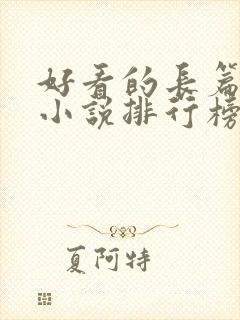 好看的長篇
小說排行榜
夏阿特